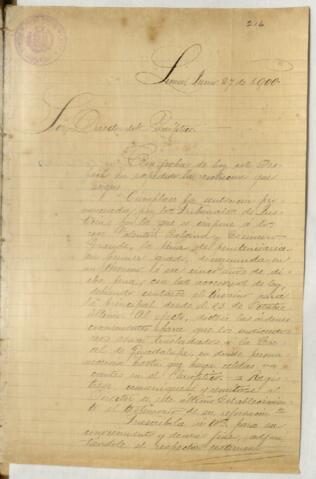 216
Lima, Junio 27 de 1900.
Señor Director del Panóptico.
Con fecha de hoy este Des-
pacho ha expedido la resolución que
sigue:
"Cúmplase la sentencia pro-
nunciada por los Tribunales de Jus-
ticia, por la que se impone a los
reos
Grande, la pena de penitenciaría
en primer grado, disminuida en
un término, o sea cinco años de di-
cha pena, con las accesorias de ley,
debiendo contarse el término para
la principal desde el 23 de Octubre
último. Al efecto, díctese las órdenes
convenientes para que los indicados
reos sean trasladados a la Cár-
cel de Guadalupe, en donde perma-
necerán hasta que haya celdas va-
cantes en el Panóptico. Regís-
trese, comuníquese y remítase al
Director de este último Establecimien-
to el testimonio de su referencia."
Trascríbola a Ud. para su
conocimiento y demás fines, adjun-
tándole el respectivo testimonio